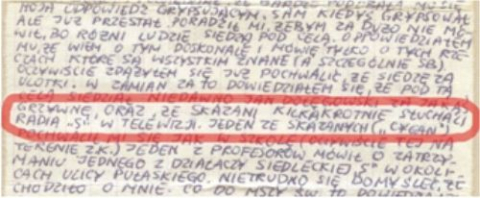 MOJA ODPOWIEDŹ GRYPSUJĄCYM, SAM KIEDYŚ GRYPSOWAŁ
ALE JUŻ PRZESTAŁ. PORADZIŁ MI ŻEBYM ZA DUŻO NIE MÓ-
WIŁ, BO RÓŻNI LUDZIE SIEDZĄ POD CELĄ. ODPOWIEDZIAŁEM
MU, ŻE WIEM O TYM DOSKONALE I MÓWIĘ TYLKO O TYCH RZE-
CZACH KTÓRE SĄ WSZYSTKIM ZNANE (A SZCZEGÓLNIE SB)
OCZYWIŚCIE ZDĄŻYŁEM SIĘ JUŻ POCHWALIĆ ŻE SIEDZĘ ZA
ULOTKI. W ZAMIAN ZA TO DOWIEDZIAŁEM SIĘ, ŻE POD TĄ
CELĄ SIEDZIAŁ NIEDAWNO JAN ZA JAKĄŚ
GRZYWNĘ, ORAZ, ŻE SKAZANI KILKAKROTNIE SŁUCHALI
RADIA „S" I TELEWIZJI. JEDEN ZE SKAZANYCH („CYGAN")
POCHWALIŁ MI SIĘ JAK W SZKOLE (OCZYWIŚCIE TEJ NA
TERENIE Z.K.) JEDEN Z PROFESORÓW MÓWIŁ O ZATRZY-
MANIU JEDNEGO Z DZIAŁACZY SIEDLECKIEJ „S" W OKOLI-
CACH ULICY PUŁASKIEGO. NIETRUDNO SIĘ DOMYŚLEĆ, ŻE
CHODZIŁO O MNIE. CO DO MSZY ŚW. TO